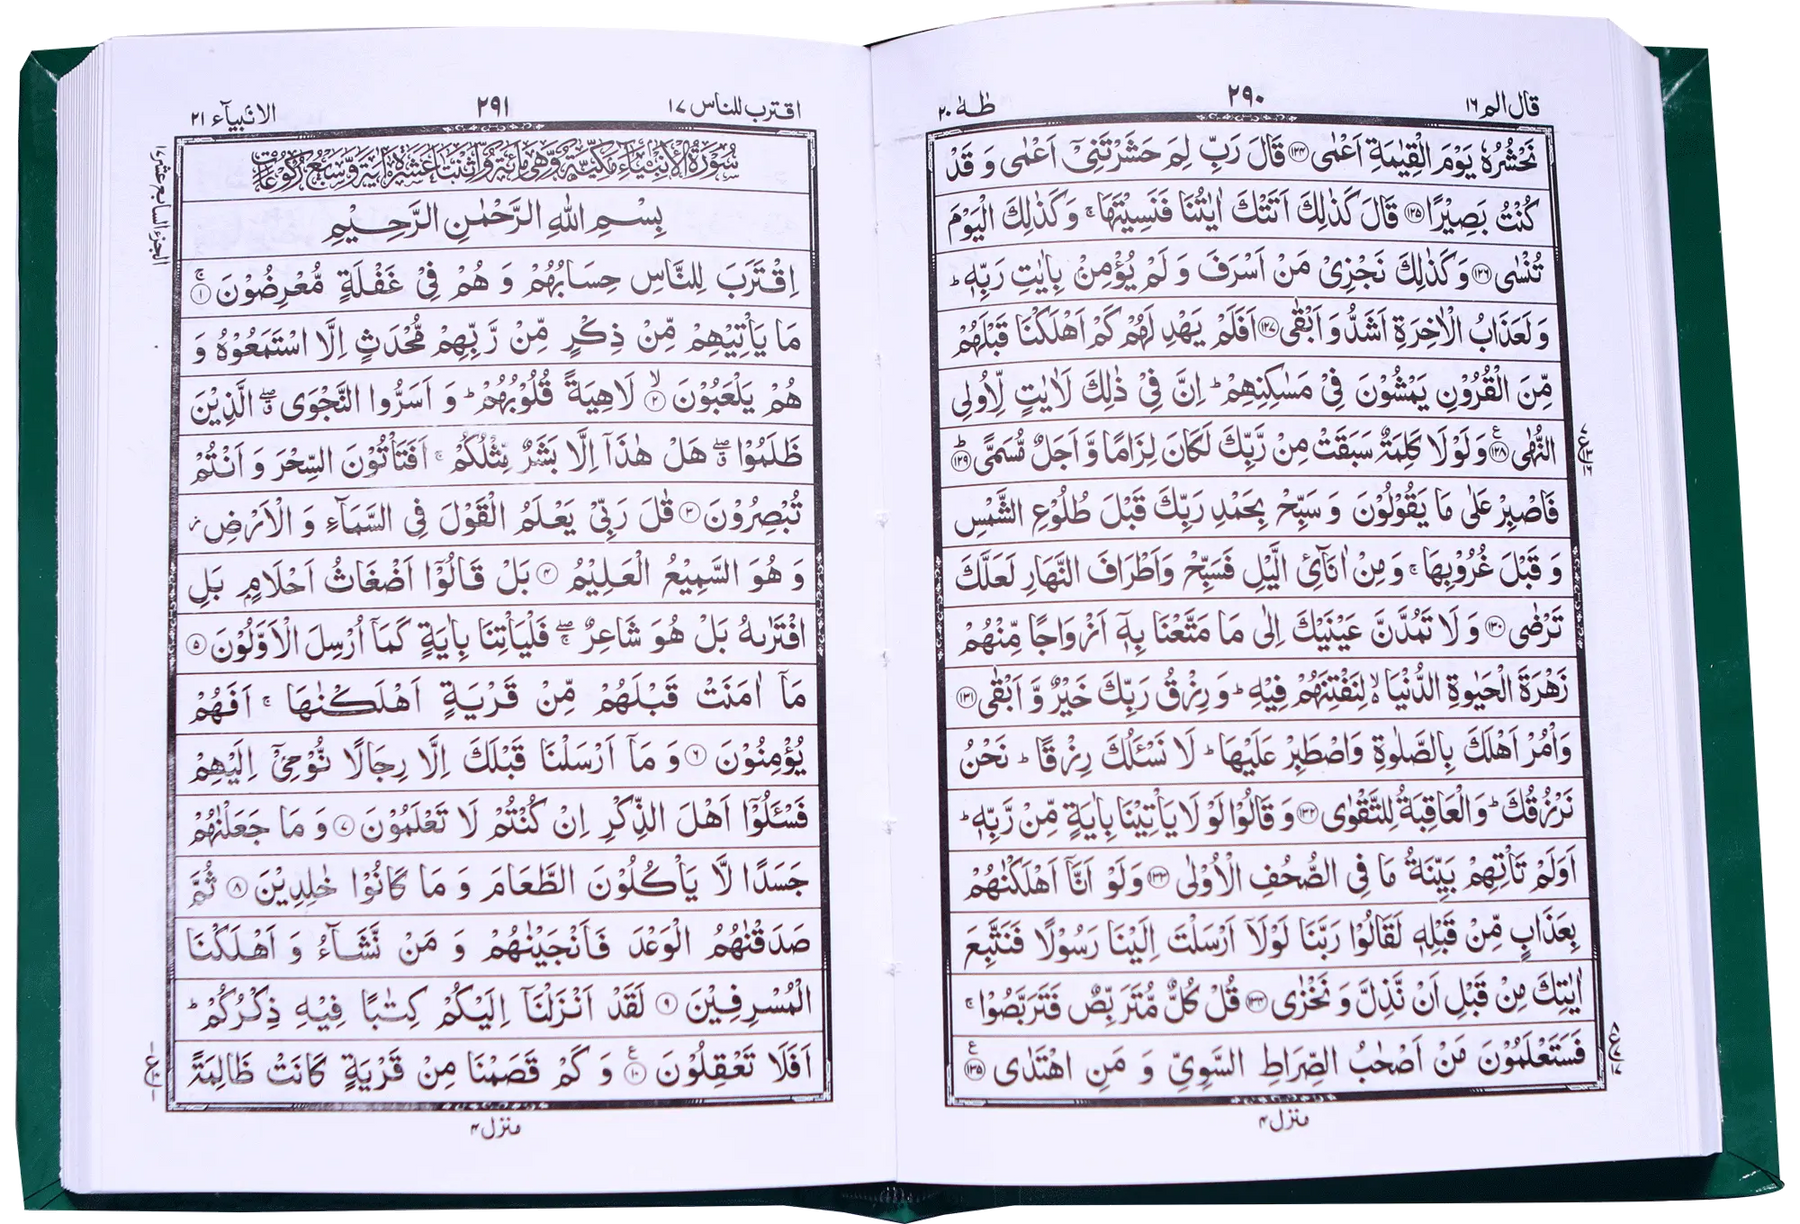 قال الم ١٦
٢٩٠
طٰهٰ ٢٠
نَحْشُرُهٗ يَوْمَ الْقِيٰمَةِ اَعْمٰى ﴿١٢٤﴾ قَالَ رَبِّ لِمَ حَشَرْتَنِیْۤ اَعْمٰى وَ قَدْ
كُنْتُ بَصِيْرًا ﴿١٢٥﴾ قَالَ كَذٰلِكَ اَتَتْكَ اٰيٰتُنَا فَنَسِيْتَهَا ۚ وَكَذٰلِكَ الْيَوْمَ
تُنْسٰى ﴿١٢٦﴾ وَكَذٰلِكَ نَجْزِىْ مَنْ اَسْرَفَ وَ لَمْ يُؤْمِنْۢ بِاٰيٰتِ رَبِّهٖ ؕ
وَ لَعَذَابُ الْاٰخِرَةِ اَشَدُّ وَ اَبْقٰى ﴿١٢٧﴾ اَفَلَمْ يَهْدِ لَهُمْ كَمْ اَهْلَكْنَا قَبْلَهُمْ
مِّنَ الْقُرُوْنِ يَمْشُوْنَ فِىْ مَسٰكِنِهِمْ ؕ اِنَّ فِىْ ذٰلِكَ لَاٰيٰتٍ لِّاُولِى
النُّهٰى ﴿١٢٨﴾ وَلَوْ لَا كَلِمَةٌ سَبَقَتْ مِنْ رَّبِّكَ لَكَانَ لِزَامًا وَّ اَجَلٌ مُّسَمًّى ﴿١٢٩﴾
فَاصْبِرْ عَلٰى مَا يَقُوْلُوْنَ وَ سَبِّحْ بِحَمْدِ رَبِّكَ قَبْلَ طُلُوْعِ الشَّمْسِ
وَ قَبْلَ غُرُوْبِهَا ۚ وَ مِنْ اٰنَآئِ الَّيْلِ فَسَبِّحْ وَاَطْرَافَ النَّهَارِ لَعَلَّكَ
تَرْضٰى ﴿١٣٠﴾ وَ لَا تَمُدَّنَّ عَيْنَيْكَ اِلٰى مَا مَتَّعْنَا بِهٖۤ اَزْوَاجًا مِّنْهُمْ
زَهْرَةَ الْحَيٰوةِ الدُّنْيَا ۙ لِنَفْتِنَهُمْ فِيْهِ ؕ وَ رِزْقُ رَبِّكَ خَيْرٌ وَّ اَبْقٰى ﴿١٣١﴾
وَاْمُرْ اَهْلَكَ بِالصَّلٰوةِ وَاصْطَبِرْ عَلَيْهَا ؕ لَا نَسْـَٔلُكَ رِزْقًا ؕ نَحْنُ
نَرْزُقُكَ ؕ وَالْعَاقِبَةُ لِلتَّقْوٰى ﴿١٣٢﴾ وَ قَالُوْا لَوْ لَا يَاْتِيْنَا بِاٰيَةٍ مِّنْ رَّبِّهٖ ؕ
اَوَلَمْ تَاْتِهِمْ بَيِّنَةُ مَا فِى الصُّحُفِ الْاُوْلٰى ﴿١٣٣﴾ وَلَوْ اَنَّاۤ اَهْلَكْنٰهُمْ
بِعَذَابٍ مِّنْ قَبْلِهٖ لَقَالُوْا رَبَّنَا لَوْلَاۤ اَرْسَلْتَ اِلَيْنَا رَسُوْلًا فَنَتَّبِعَ
اٰيٰتِكَ مِنْ قَبْلِ اَنْ نَّذِلَّ وَ نَخْزٰى ﴿١٣٤﴾ قُلْ كُلٌّ مُّتَرَبِّصٌ فَتَرَبَّصُوْا ۚ
فَسَتَعْلَمُوْنَ مَنْ اَصْحٰبُ الصِّرَاطِ السَّوِىِّ وَ مَنِ اهْتَدٰى ﴿١٣٥﴾
منزل ۴
اقترب للناس ١٧
٢٩١
الانبيآء ٢١
الجزء السابع عشر
سُوْرَةُ الْاَنْۢبِيَآءِ مَكِّيَّةٌ وَّهِىَ مِائَةٌ وَّاثْنَتَا عَشَرَةَ اٰيَةً وَّسَبْعُ رُكُوْعَاتٍ
بِسْمِ اللّٰهِ الرَّحْمٰنِ الرَّحِيْمِ
اِقْتَرَبَ لِلنَّاسِ حِسَابُهُمْ وَ هُمْ فِىْ غَفْلَةٍ مُّعْرِضُوْنَ ۚ ﴿١﴾
مَا يَاْتِيْهِمْ مِّنْ ذِكْرٍ مِّنْ رَّبِّهِمْ مُّحْدَثٍ اِلَّا اسْتَمَعُوْهُ وَ
هُمْ يَلْعَبُوْنَ ۙ ﴿٢﴾ لَاهِيَةً قُلُوْبُهُمْ ؕ وَ اَسَرُّوا النَّجْوَى ۖ الَّذِيْنَ
ظَلَمُوْا ۖ هَلْ هٰذَاۤ اِلَّا بَشَرٌ مِّثْلُكُمْ ۚ اَفَتَاْتُوْنَ السِّحْرَ وَ اَنْتُمْ
تُبْصِرُوْنَ ﴿٣﴾ قٰلَ رَبِّىْ يَعْلَمُ الْقَوْلَ فِى السَّمَآءِ وَ الْاَرْضِ ؗ
وَ هُوَ السَّمِيْعُ الْعَلِيْمُ ﴿٤﴾ بَلْ قَالُوْۤا اَضْغَاثُ اَحْلَامٍۭ بَلِ
افْتَرٰىهُ بَلْ هُوَ شَاعِرٌ ۖۚ فَلْيَاْتِنَا بِاٰيَةٍ كَمَاۤ اُرْسِلَ الْاَوَّلُوْنَ ﴿٥﴾
مَاۤ اٰمَنَتْ قَبْلَهُمْ مِّنْ قَرْيَةٍ اَهْلَكْنٰهَا ۚ اَفَهُمْ
يُؤْمِنُوْنَ ﴿٦﴾ وَ مَاۤ اَرْسَلْنَا قَبْلَكَ اِلَّا رِجَالًا نُّوْحِىْۤ اِلَيْهِمْ
فَسْـَٔلُوْۤا اَهْلَ الذِّكْرِ اِنْ كُنْتُمْ لَا تَعْلَمُوْنَ ﴿٧﴾ وَ مَا جَعَلْنٰهُمْ
جَسَدًا لَّا يَاْكُلُوْنَ الطَّعَامَ وَ مَا كَانُوْا خٰلِدِيْنَ ﴿٨﴾ ثُمَّ
صَدَقْنٰهُمُ الْوَعْدَ فَاَنْجَيْنٰهُمْ وَ مَنْ نَّشَآءُ وَ اَهْلَكْنَا
الْمُسْرِفِيْنَ ﴿٩﴾ لَقَدْ اَنْزَلْنَاۤ اِلَيْكُمْ كِتٰبًا فِيْهِ ذِكْرُكُمْ ؕ
اَفَلَا تَعْقِلُوْنَ ﴿١٠﴾ وَ كَمْ قَصَمْنَا مِنْ قَرْيَةٍ كَانَتْ ظَالِمَةً
منزل ۴